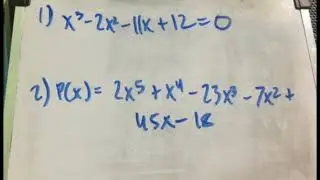 1) x³-2x²-11x+12=0
2) P(x)= 2x⁵+x⁴-23x³-7x²+
45x-18